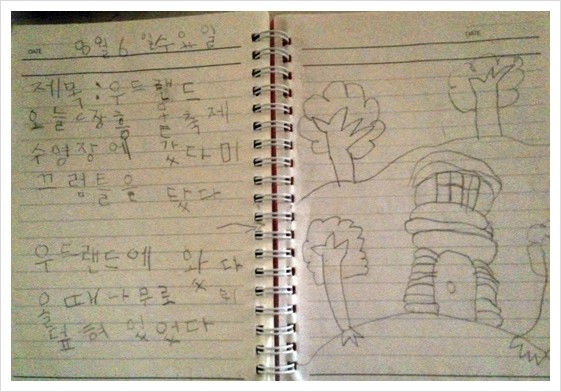 DATE 8월 6일 수요일
제목:우드랜드
오늘 장흥 물축제
수영장에 갔다 미
끄럼틀을 탔다
우드랜드에 왔다
올때 나무로 뒤
덮혀 있었다
DATE